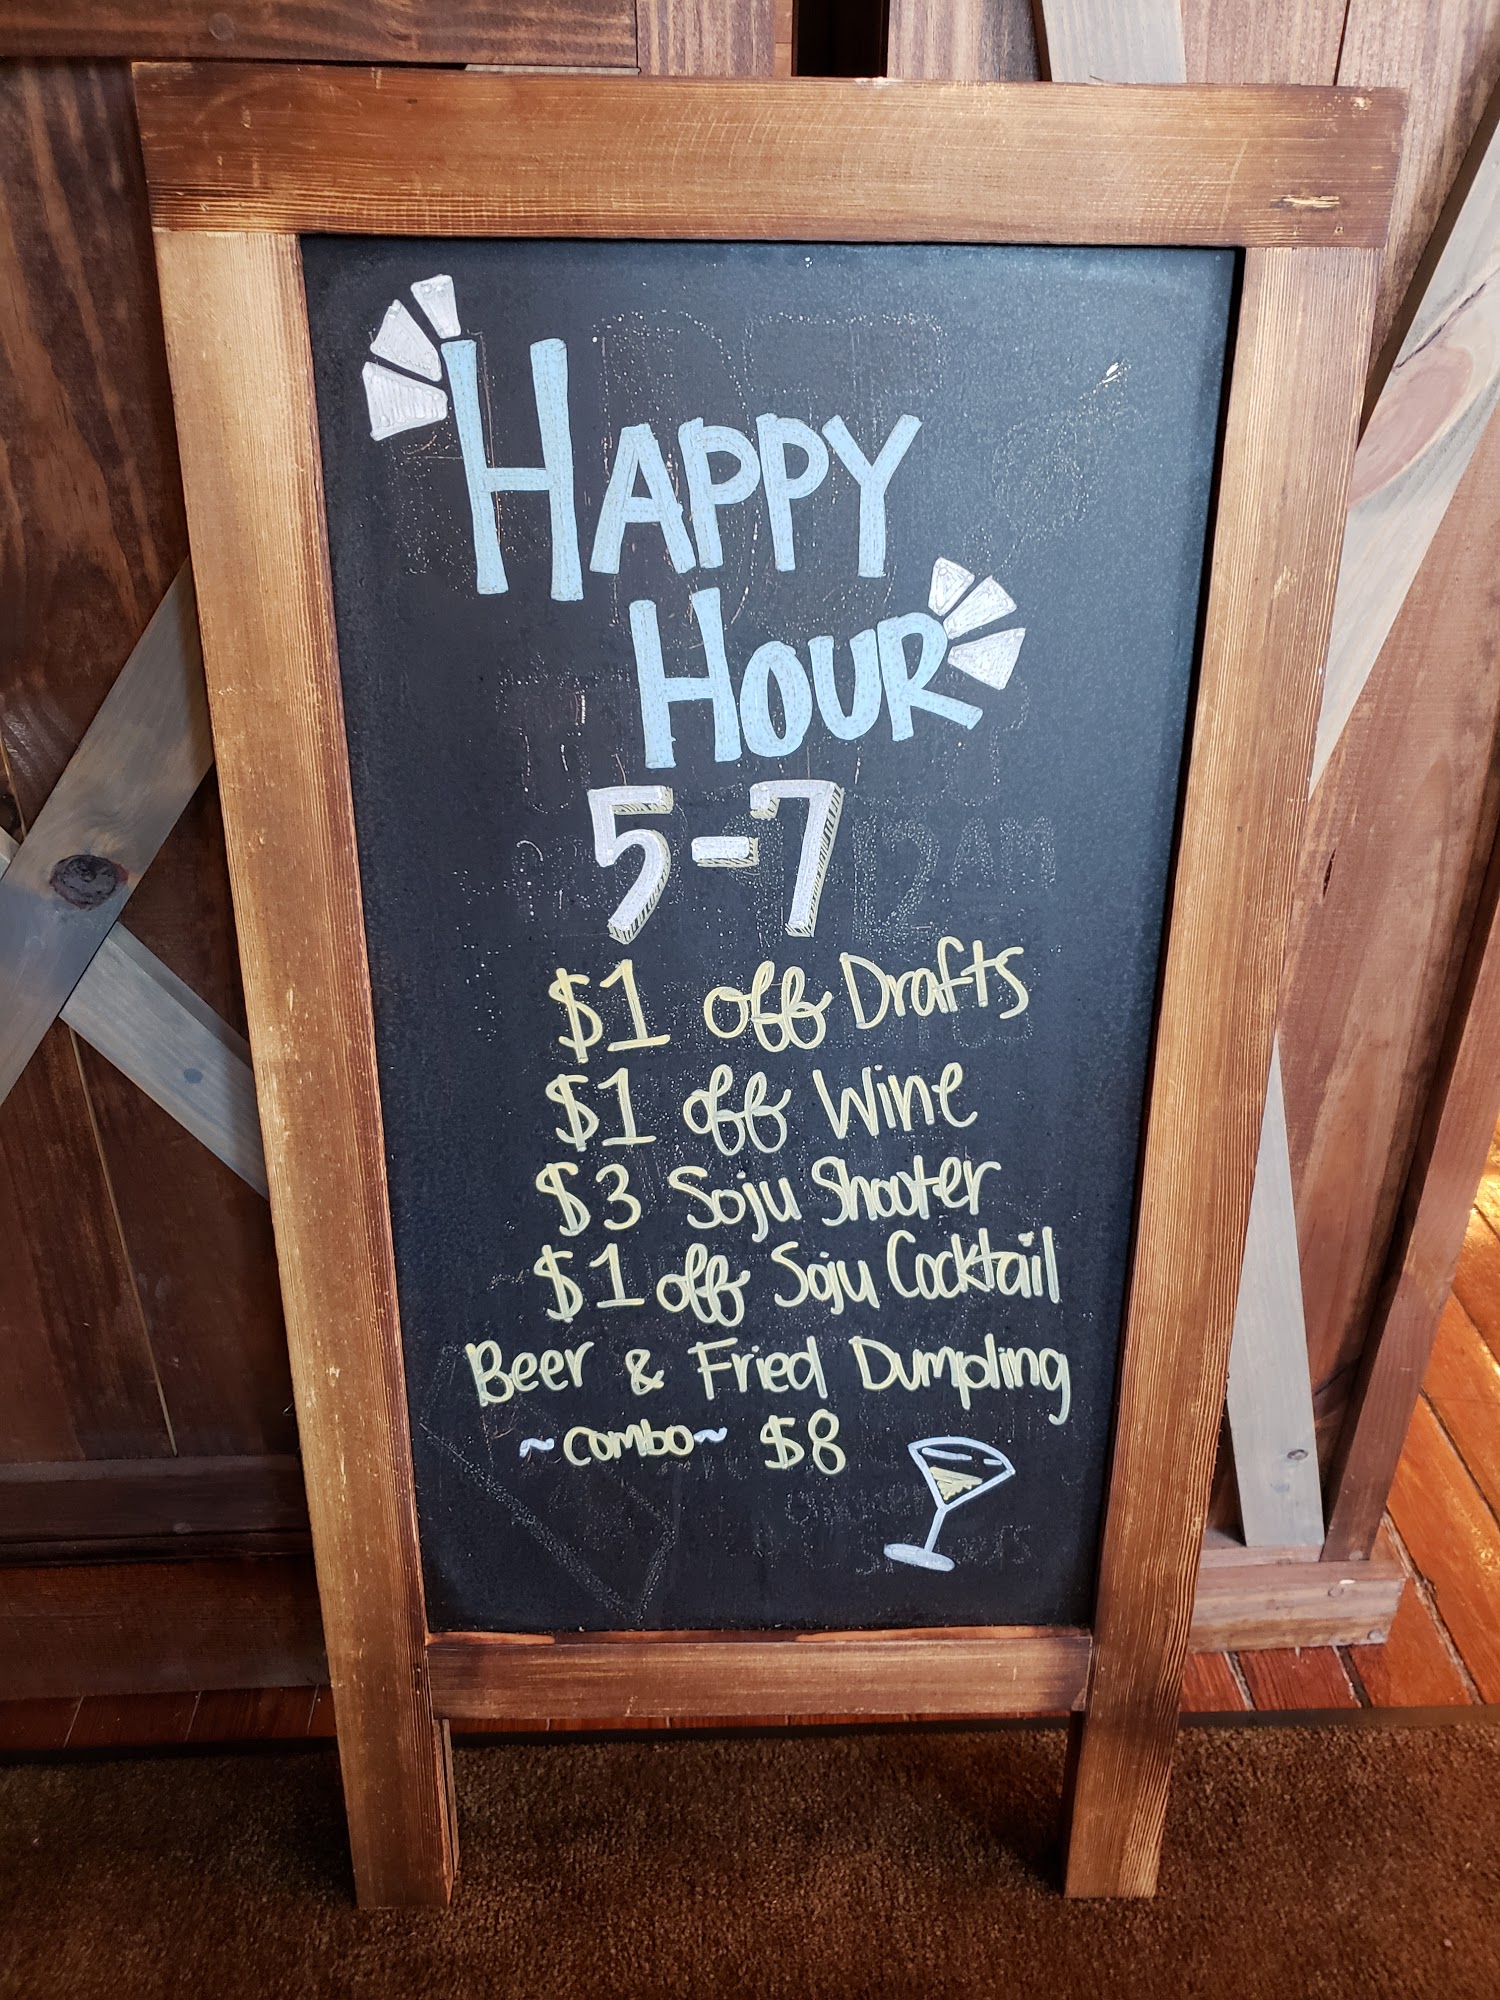 HAPPY
HOUR
5-7
$1 off Drafts
$1 off Wine
$3 Soju Shooter
$1 off Soju Cocktail
Beer & Fried Dumpling
~combo~ $8
12AM